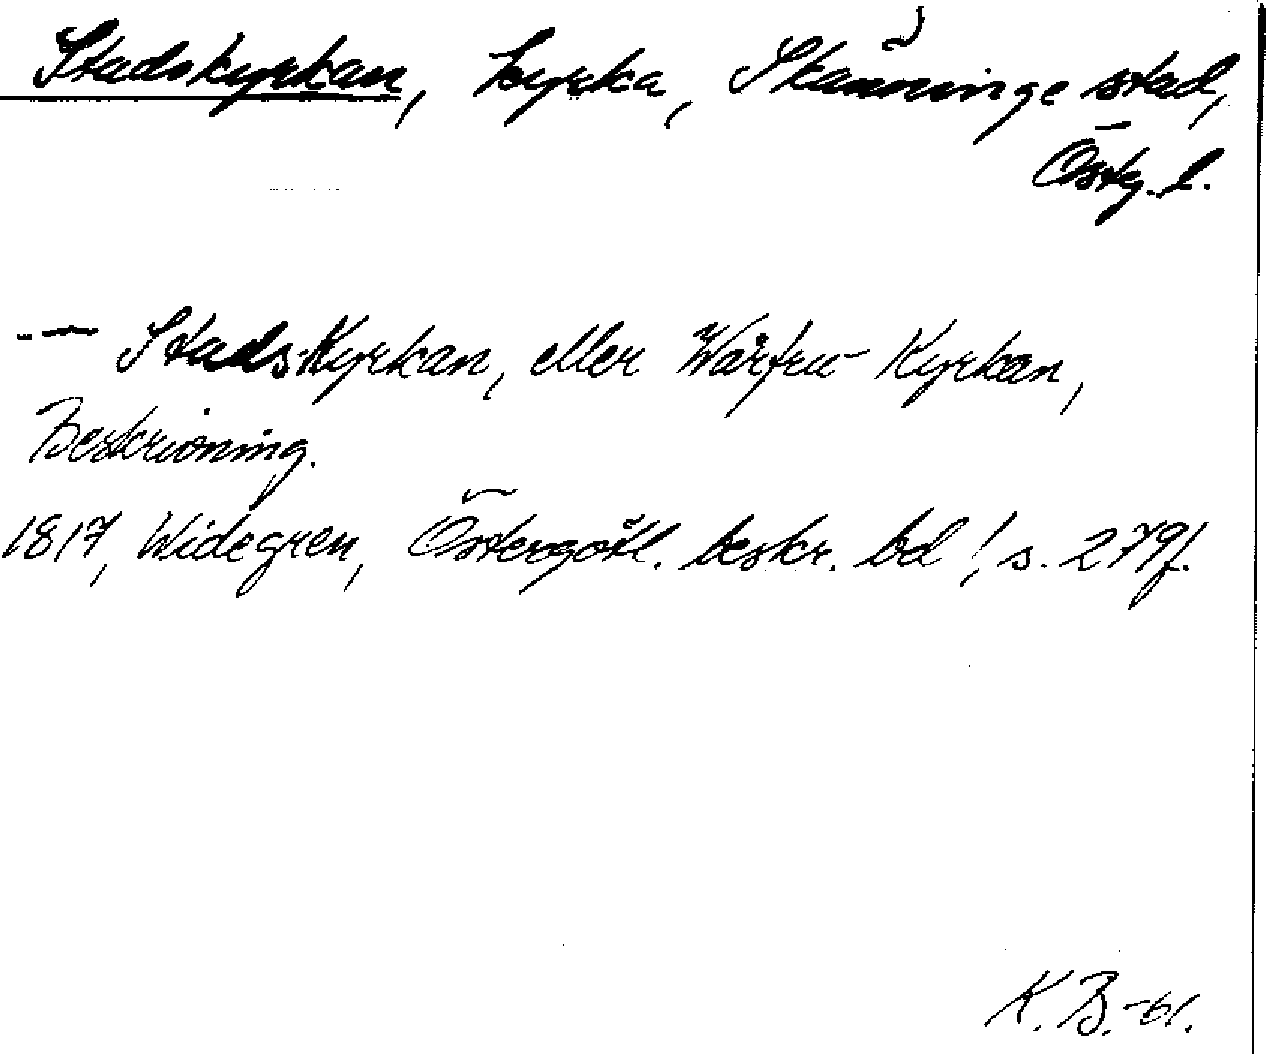 Stadskyrkan, kyrka, Skänninge stad,
Östg. l.
-- Stads-Kyrkan, eller Wårfru-Kyrkan,
Beskrivning.
1817, Widegren, Östergötl. beskr. bd 1, s. 279f.
K. B. -61.